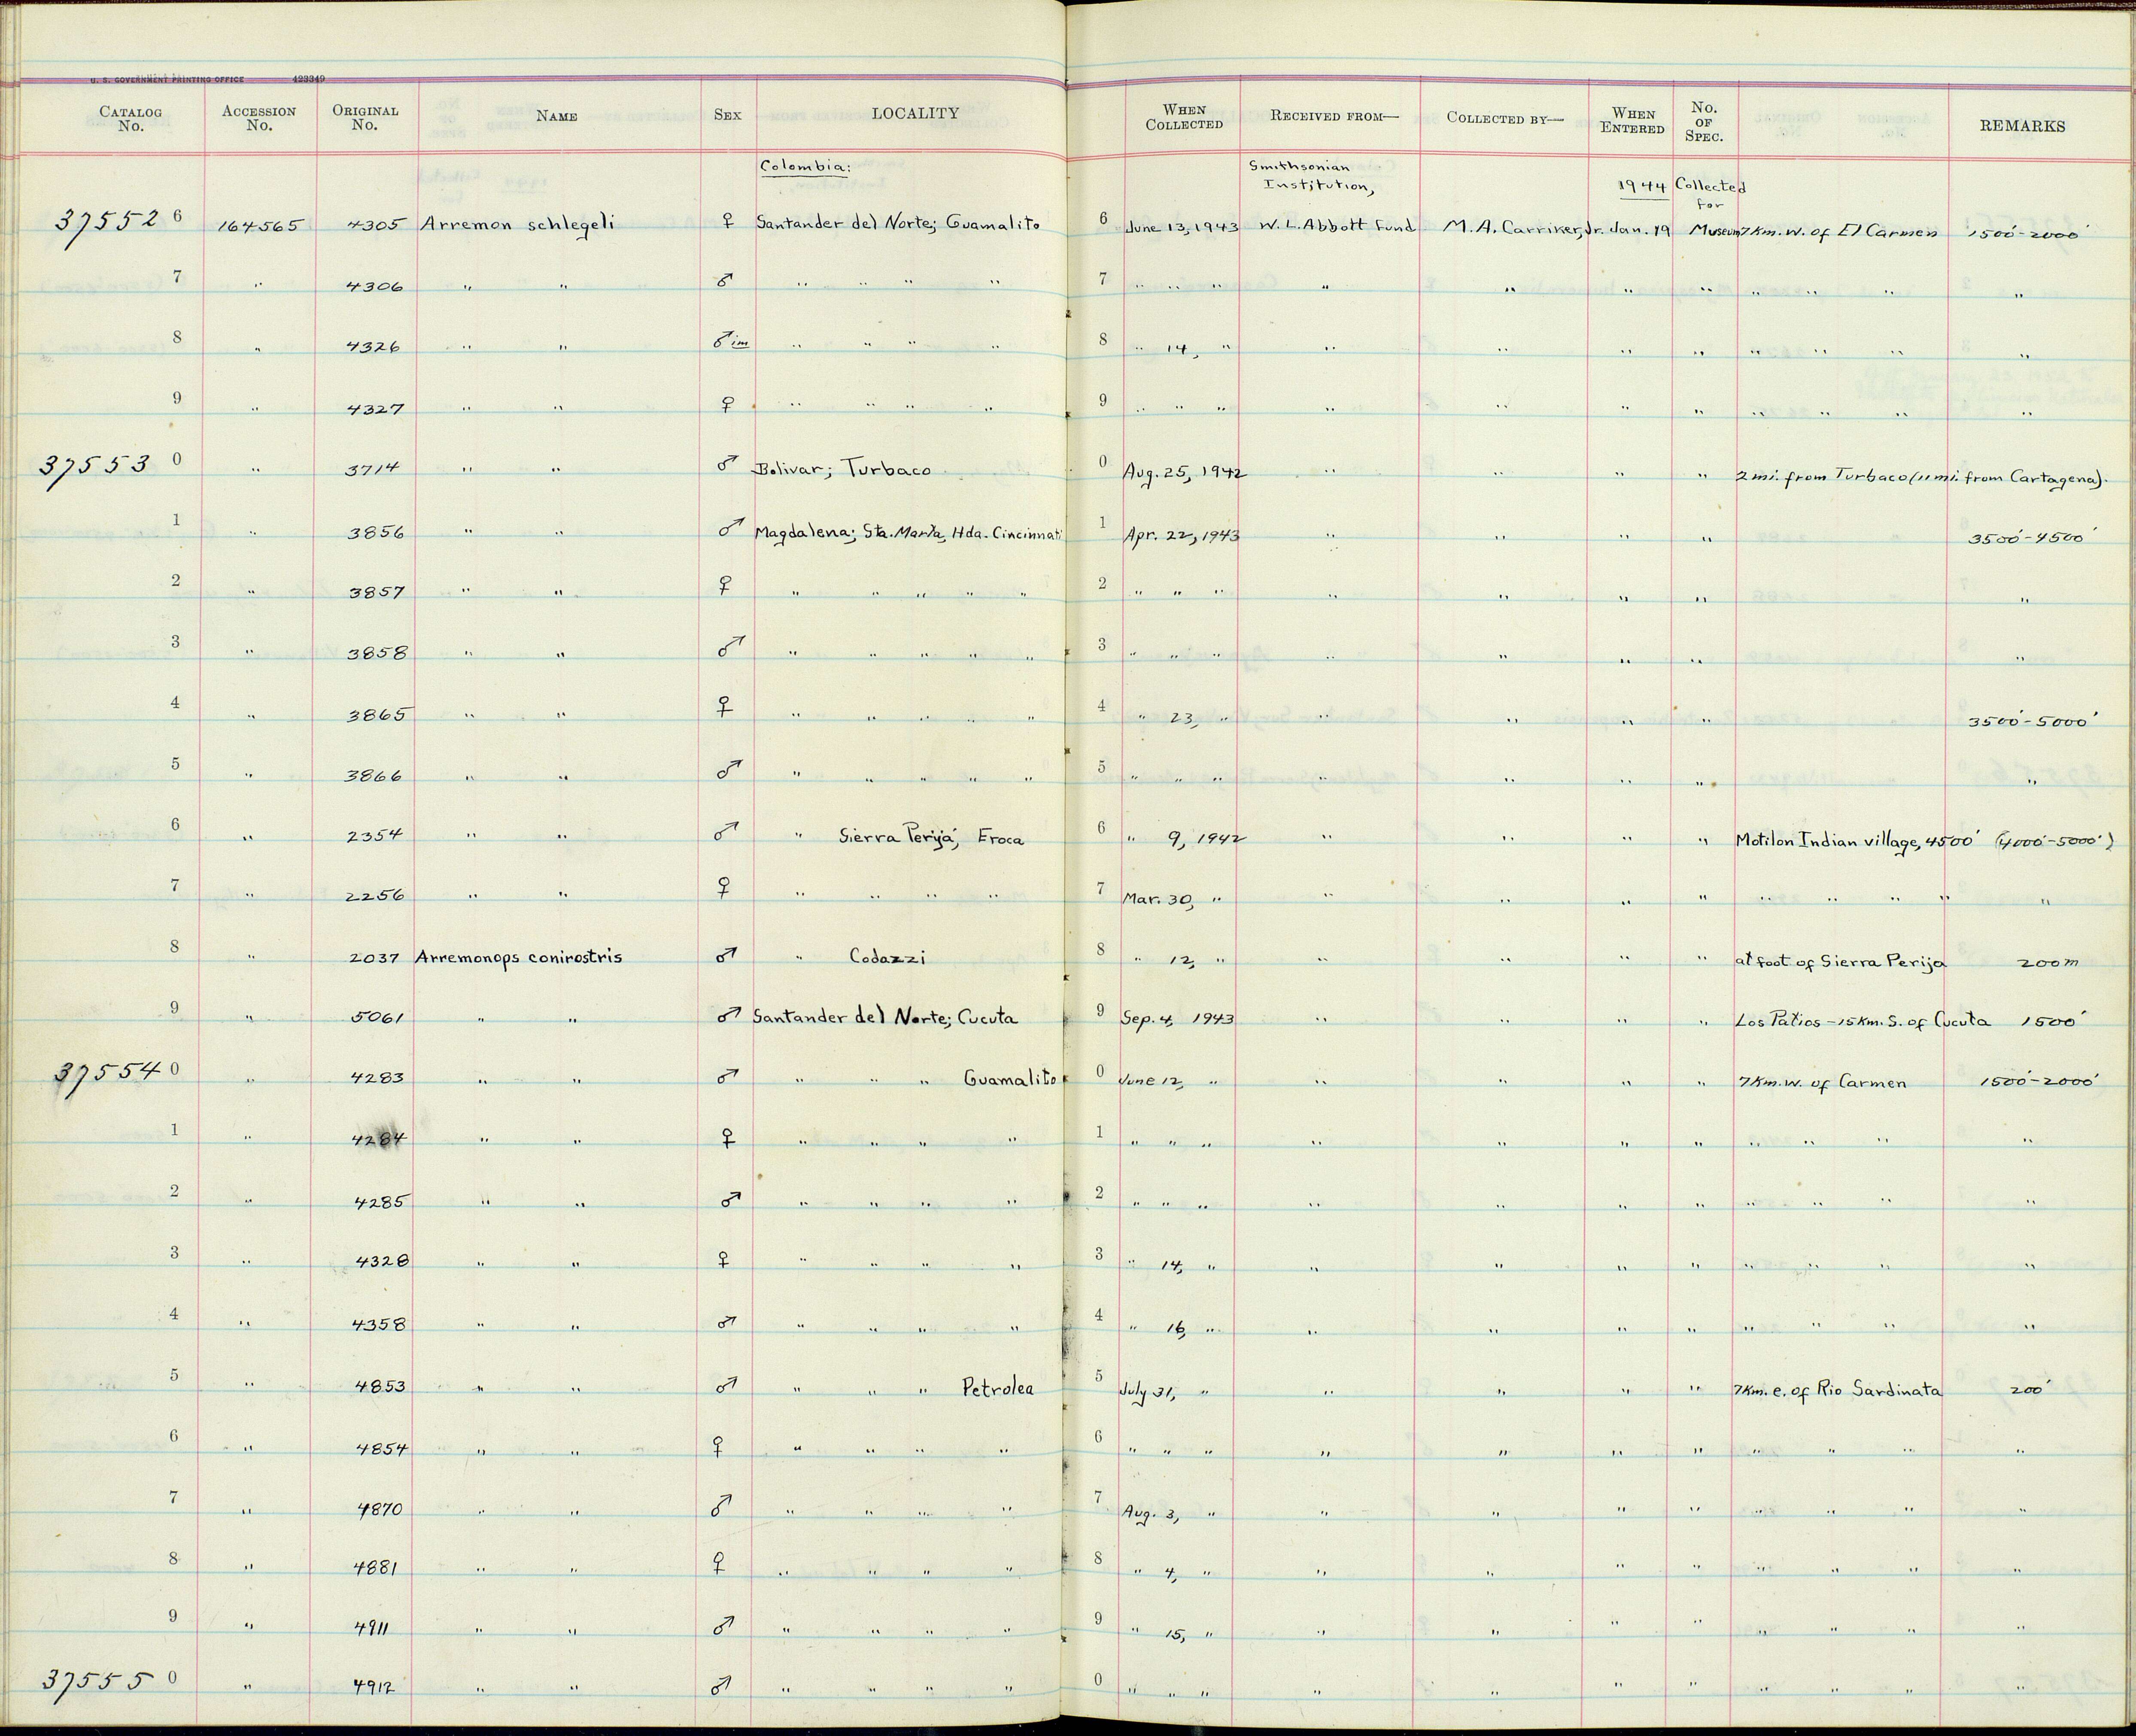 U. S. GOVERNMENT PRINTING OFFICE 423349
CATALOG No. ACCESSION No. ORIGINAL No. NAME SEX LOCALITY WHEN COLLECTED RECEIVED FROM— COLLECTED BY— WHEN ENTERED No. OF SPEC. REMARKS
Colombia: Smithsonian Institution, 1944 Collected for
37552 6 164565 4305 Arremon schlegeli ♀ Santander del Norte; Guamalito 6 June 13, 1943 W. L. Abbott Fund M. A. Carriker, Jr. Jan. 19 Museum 7 km. w. of El Carmen 1500'-2000'
7 " 4306 " " ♂ " " " " 7 " " " " " " " " " " "
8 " 4326 " " ♂ im " " " " 8 " 14, " " " " " " " " "
9 " 4327 " " ♀ " " " " 9 " " " " " " " " " " "
37553 0 " 3714 " " ♂ Bolivar; Turbaco 0 Aug. 25, 1942 " " " " 2 mi. from Turbaco (11 mi. from Cartagena).
1 " 3856 " " ♂ Magdalena; Sta. Marta, Hda. Cincinnati 1 Apr. 22, 1943 " " " " 3500'-4500'
2 " 3857 " " ♀ " " " " " 2 " " " " " " " "
3 " 3858 " " ♂ " " " " " 3 " " " " " " " "
4 " 3865 " " ♀ " " " " " 4 " 23, " " " " " 3500'-5000'
5 " 3866 " " ♂ " " " " " 5 " " " " " " " "
6 " 2354 " " ♂ " Sierra Perijá, Eroca 6 " 9, 1942 " " " " Motilon Indian village, 4500' (4000'-5000')
7 " 2256 " " ♀ " " " " 7 Mar. 30, " " " " " " " " " "
8 " 2037 Arremonops conirostris ♂ " Codazzi 8 " 12, " " " " " at foot of Sierra Perija 200m
9 " 5061 " " ♂ Santander del Norte; Cucuta 9 Sep. 4, 1943 " " " " Los Patios - 15 km. S. of Cucuta 1500'
37554 0 " 4283 " " ♂ " " " Guamalito 0 June 12, " " " " " 7 km. w. of Carmen 1500'-2000'
1 " 4284 " " ♀ " " " " 1 " " " " " " " " " " "
2 " 4285 " " ♂ " " " " 2 " " " " " " " " " " "
3 " 4328 " " ♀ " " " " 3 " 14, " " " " " " " " "
4 " 4358 " " ♂ " " " " 4 " 16, " " " " " " " " "
5 " 4853 " " ♂ " " " Petrolea 5 July 31, " " " " " 7 km. e. of Rio Sardinata 200'
6 " 4854 " " ♀ " " " " 6 " " " " " " " " " " "
7 " 4870 " " ♂ " " " " 7 Aug. 3, " " " " " " " " "
8 " 4881 " " ♀ " " " " 8 " 4, " " " " " " " " "
9 " 4911 " " ♂ " " " " 9 " 15, " " " " " " " " "
37555 0 " 4912 " " ♂ " " " " 0 " " " " " " " " " " "